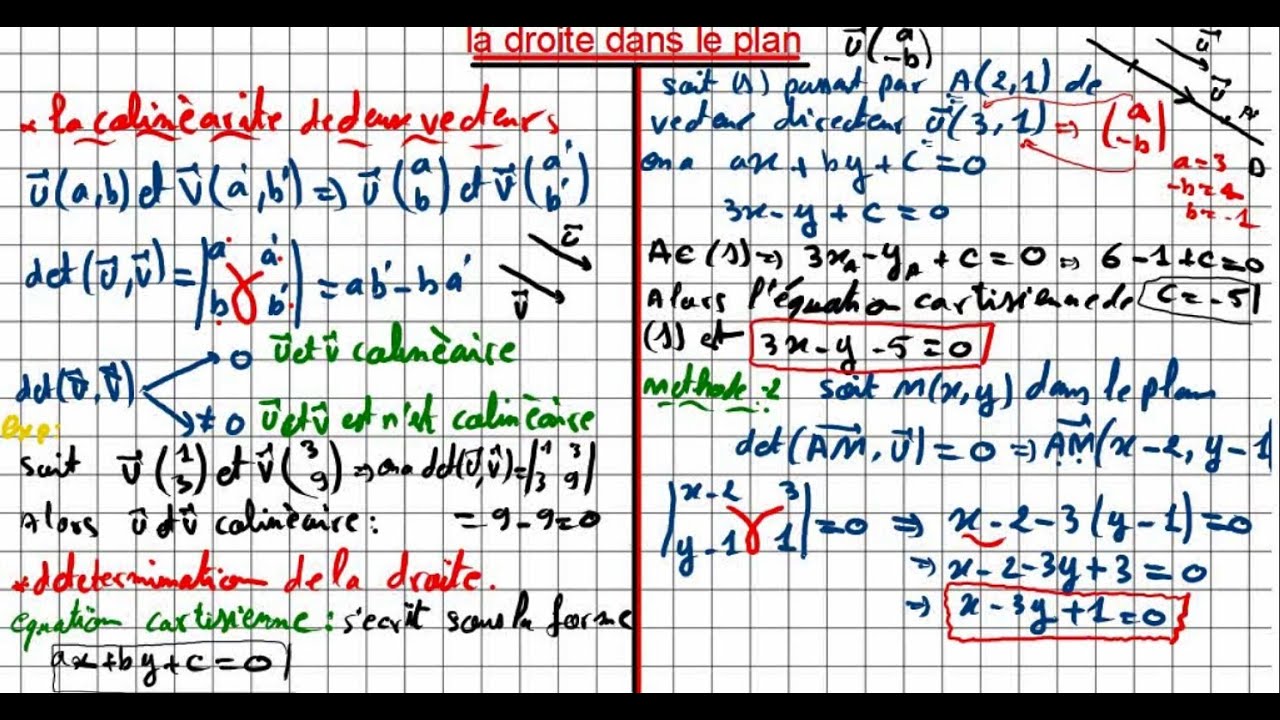 la droite dans le plan
* la calinèarite de deux vecteurs
u⃗(a,b) et v⃗(a',b') ⇒ u⃗(a b) et v⃗(a' b')
det(u⃗,v⃗) = |a a' b b'| = ab' - ba'
u⃗
v⃗
det(u⃗,v⃗)
0 u⃗ et v⃗ calinèaire
≠ 0 u⃗ et v⃗ est n'est calinèaire
exp:
soit u⃗(1 3) et v⃗(3 9) ⇒ on a det(u⃗,v⃗) = |1 3 3 9|
Alors u⃗ et v⃗ calinèaire: = 9 - 9 = 0
* ddetermination de la droite.
equation cartisienne: s'ecrit sous la forme
ax + by + c = 0
u⃗(a -b)
u⃗
v⃗
A
D
soit (1) passat par A(2,1) de
vecteur directeur u⃗(3,1) ⇒ (a -b)
on a ax + by + c = 0
a = 3
b = -1
3x - y + c = 0
A ∈ (1) ⇒ 3xA - yA + c = 0 ⇒ 6 - 1 + c = 0
Alors l'équation cartisienne de c = -5
(1) et 3x - y - 5 = 0
methode :2 soit M(x,y) dans le plan
det(AM⃗, u⃗) = 0 ⇒ AM⃗(x-2, y-1
|x-2 3 y-1 1| = 0 ⇒ x - 2 - 3(y-1) = 0
⇒ x - 2 - 3y + 3 = 0
⇒ x - 3y + 1 = 0